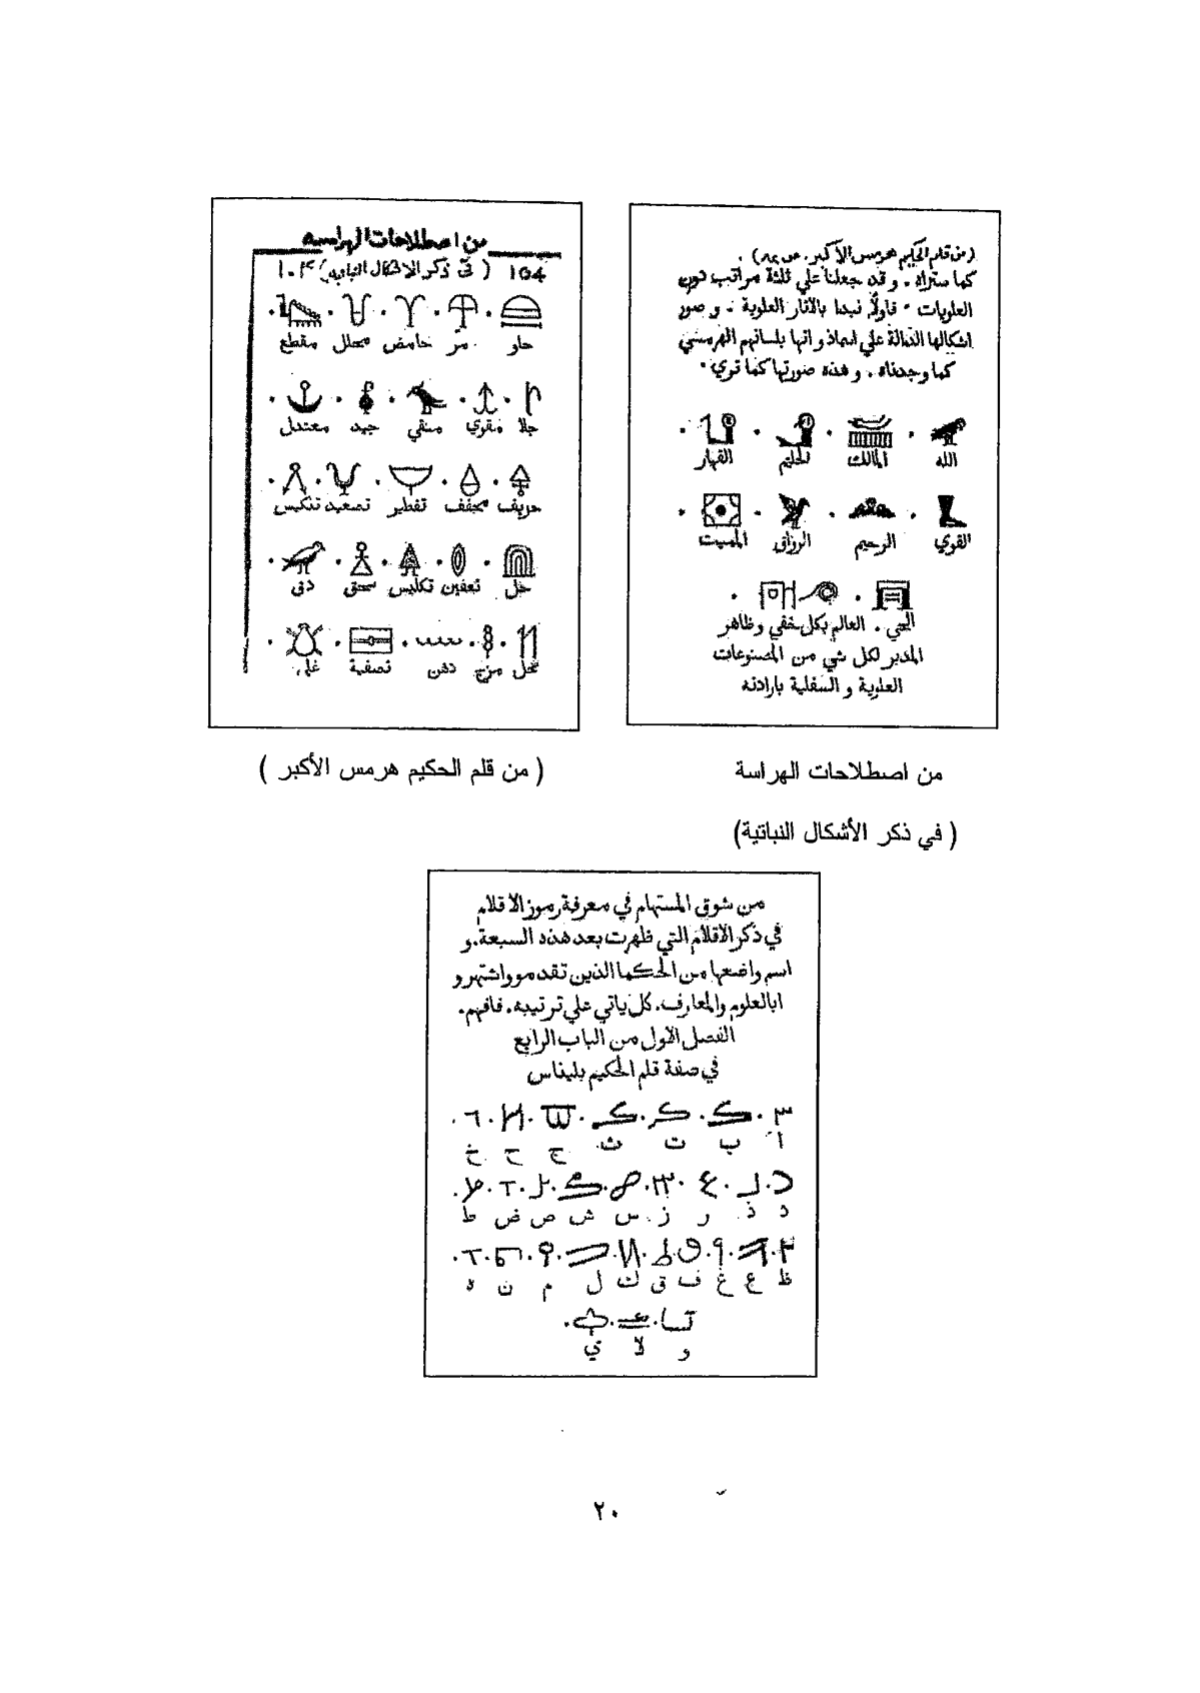 (من قلم الحكيم هرمس الأكبر.
كما ستراه. وقد جعلنا علي ثلثة مراتب دون
العلويات. فاولاً نبدا بالاثار العلوية. وصور
اشكالها الدالة علي اسماذواتها بلسانهم الهرمسي
كما وجدناه. وهذه صورتها كما تري.
الله المالك الحليم القهار
القوي الرحيم الرزاق المميت
المحي. العالم بكل خفي وظاهر
المدبر لكل شي من المصنوعات
العلوية و السفلية بارادته
من اصطلاحات الهرامسه
104 (في ذكر الاشكال النباتيه) ١٠٤
حلو مر حامض محلل مقطع
جلا مقوي منقي جيد معتدل
حريف مجفف تفطير تصعيد تنكيس
خل تعفين تكليس سحق دق
نحل مزج دهن تصفية غلي
من اصطلاحات الهراسة
( من قلم الحكيم هرمس الأكبر )
( في ذكر الأشكال النباتية)
من شوق المستهام في معرفة رموز الاقلام
في ذكر الاقلام التي ظهرت بعد هذه السبعة. و
اسم واضعها من الحكما الذين تقدموا واشتهرو
ابالعلوم والمعارف. كل ياتي علي ترتيبه. فافهم.
الفصل الاول من الباب الرابع
في صفة قلم الحكيم بليناس
ا ب ت ث ج ح خ
د ذ ر ز س ش ص ض ط
ظ ع غ ف ق ك ل م ن ه
و لا ي
٢٠